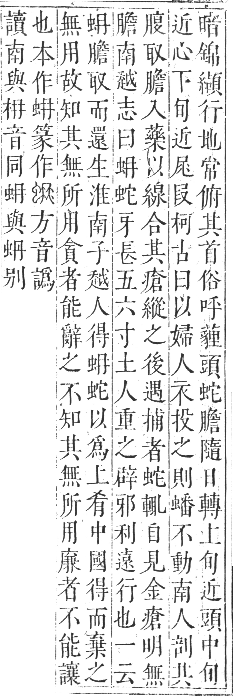 暗錦纈行地常俯其首俗呼䕮頭蛇膽隨日轉上旬近頭中旬
近心下旬近尾段柯古曰以婦人衣投之則蟠不動南人剖其
腹取膽入藥以線合其瘡縱之後遇捕者蛇輒自見金瘡明無
膽南越志曰蚺蛇牙長五六寸土人重之辟邪利遠行也一云
蚺膽取而還生淮南子越人得蚺蛇以爲上肴中國得而棄之
無用故知其無所用貪者能辭之不知其無所用廉者不能讓
也本作蚦篆作方音譌
讀南與枏音同蚦與蚺别